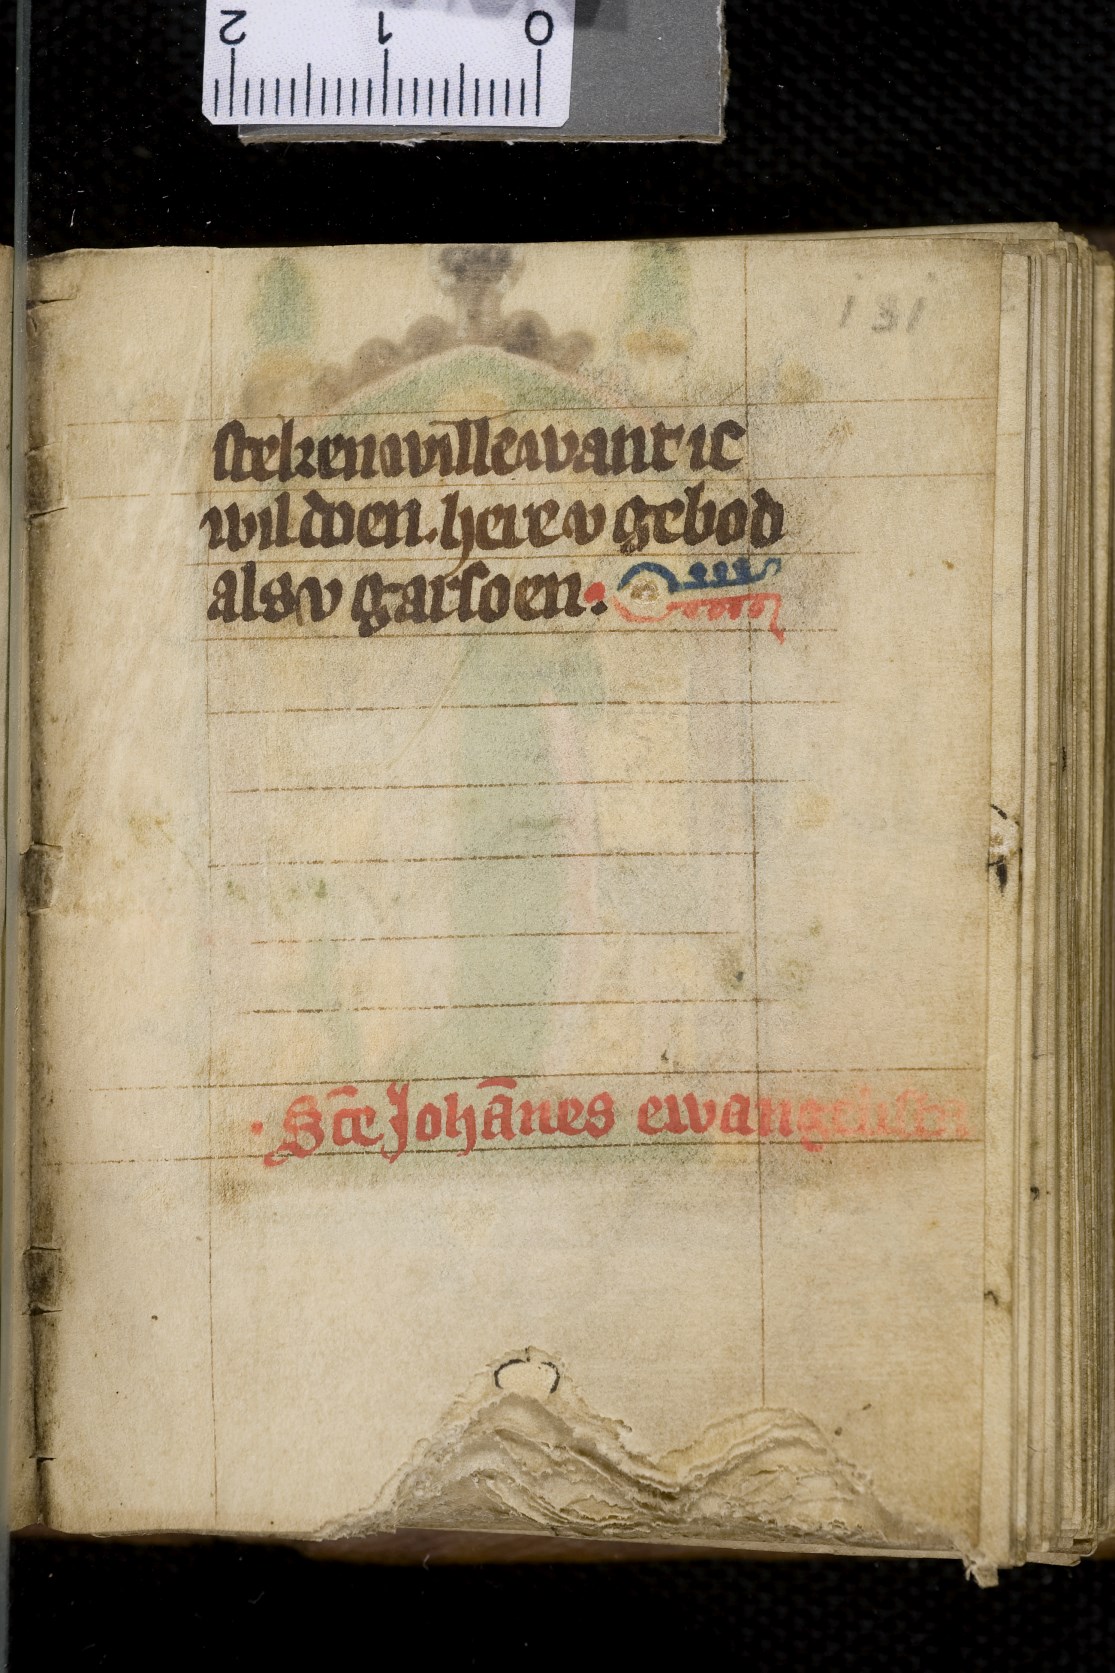 2 1 0
131
steken wille want ic
wil doen. here v gebod
als v garsoen.
Scē Johānes ewangelista